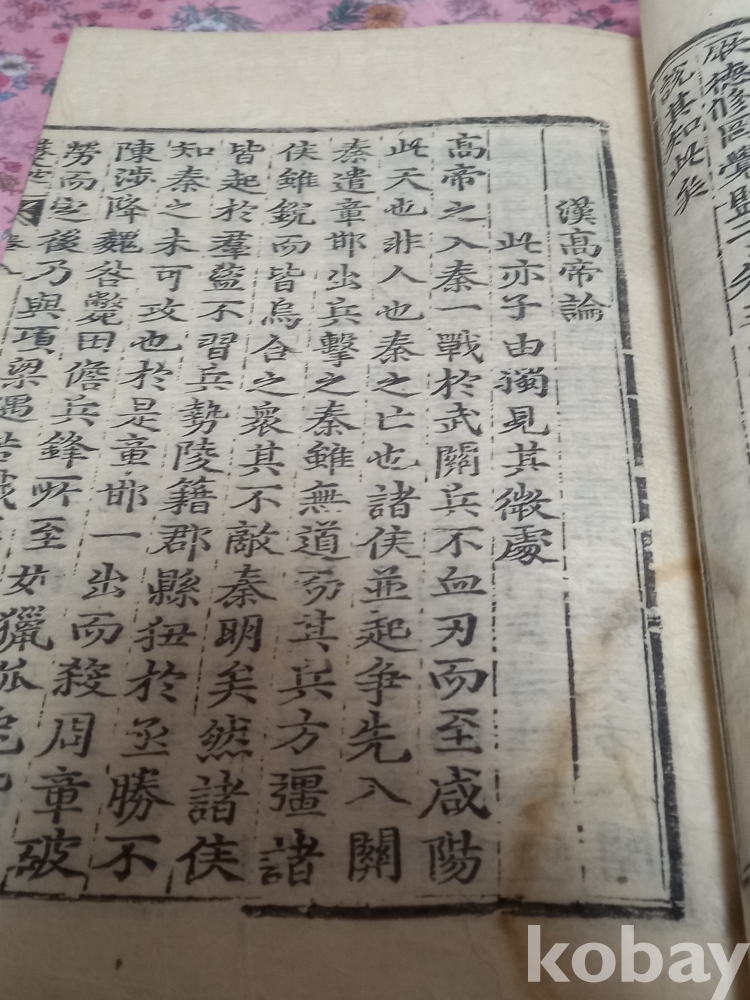 說其知此矣
漢高帝論
此亦子由獨見其微處
高帝之入秦一戰於武關兵不血刃而至咸陽
此天也非人也秦之亡也諸侯並起爭先入關
秦遣章邯出兵擊之秦雖無道而其兵方彊諸
侯雖銳而皆烏合之衆其不敵秦明矣然諸侯
皆起於羣盜不習兵勢陵籍郡縣狃於亟勝不
知秦之未可攻也於是章邯一出而殺周章破
陳涉降魏咎斃田儋兵鋒所至如獵狐
勞而定之後乃與項梁遇苦戰
kobay